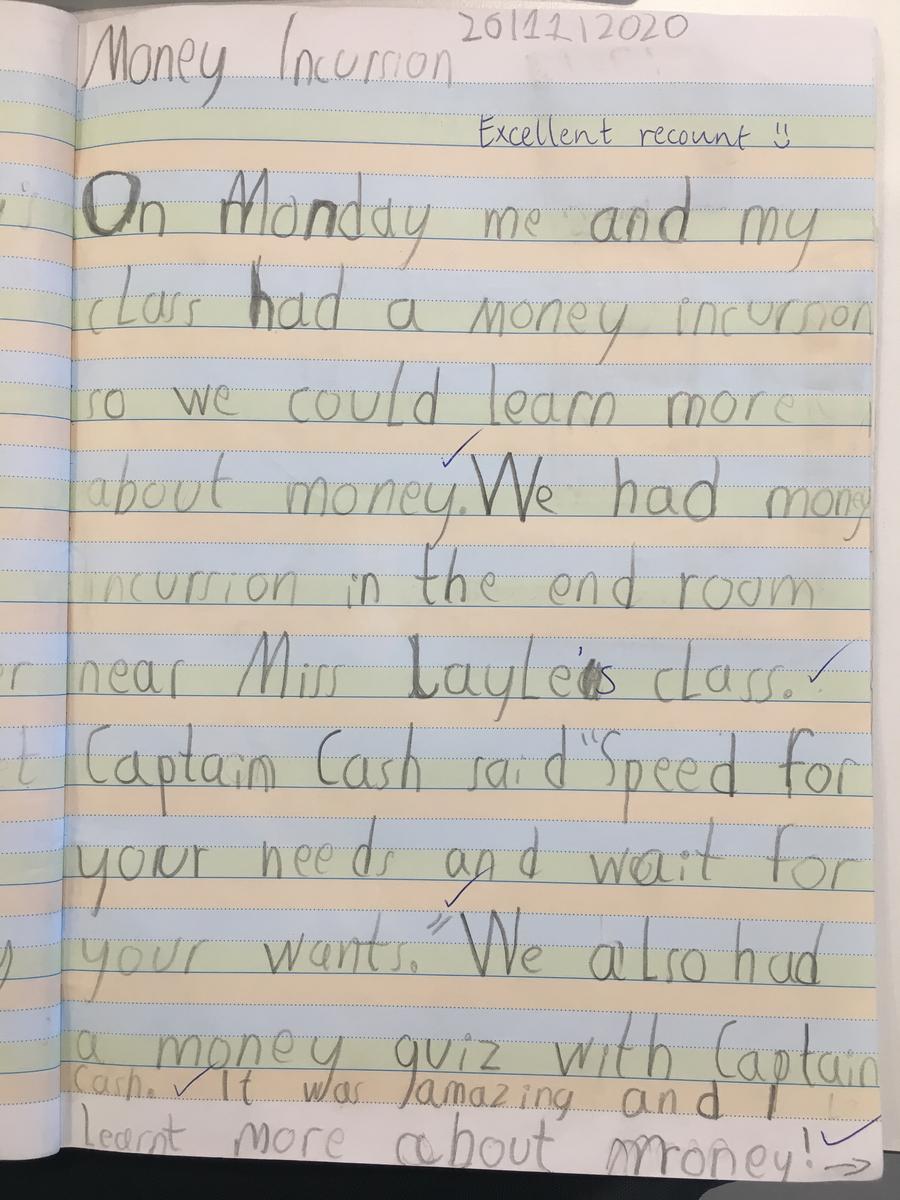 26/11/2020
Money Incursion
Excellent recount
On Monday me and my
class had a money incursion
so we could learn more
about money. We had money
incursion in the end room
near Miss Layle's class.
Captain Cash said "Speed for
your needs and wait for
your wants." We also had
a money quiz with Captain
Cash. It was amazing and I
learnt more about money!